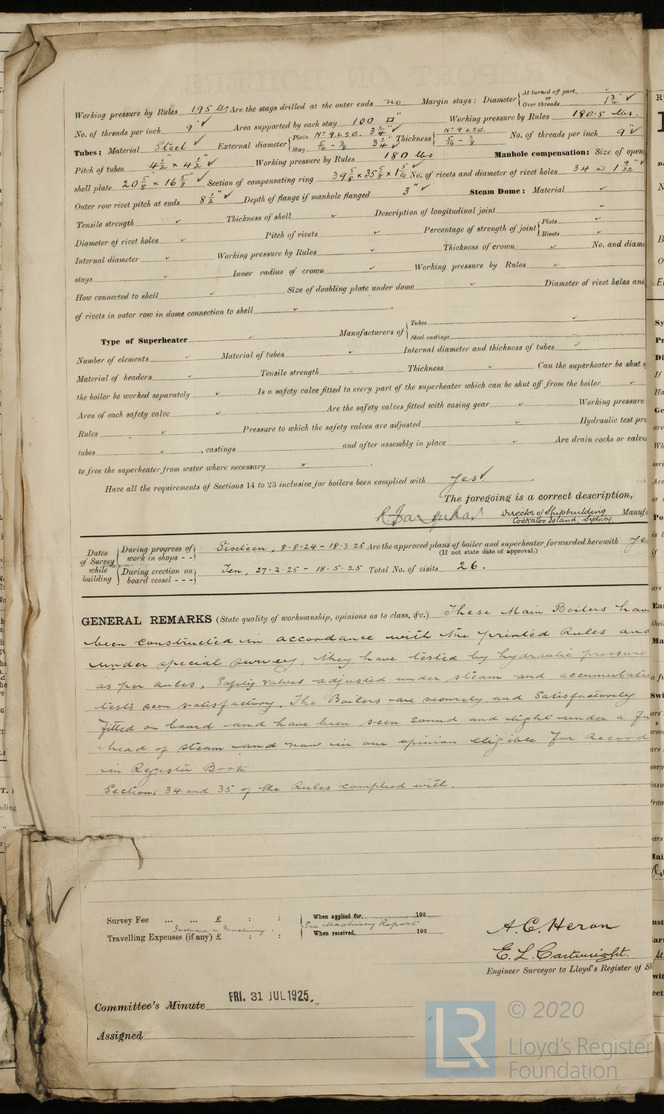 Working pressure by Rules 195 lbs Are the stays drilled at the outer ends no Margin stays: Diameter { At turned off part, or Over threads 1 3/4" ✓
No. of threads per inch 9" ✓ Area supported by each stay 100 □" Working pressure by Rules 180.5 lbs.
Tubes: Material Steel ✓ External diameter { Plain Stay Thickness { No. of threads per inch 9" ✓
Pitch of tubes 4 1/2" × 4 1/2" ✓ Working pressure by Rules 180 lbs Manhole compensation: Size of open
shell plate 20 5/8 × 16 5/8" ✓ Section of compensating ring No. of rivets and diameter of rivet holes 34
Outer row rivet pitch at ends 8 1/2" ✓ Depth of flange if manhole flanged 3" ✓ Steam Dome: Material ✓
Tensile strength ✓ Thickness of shell ✓ Description of longitudinal joint ✓
Diameter of rivet holes ✓ Pitch of rivets ✓ Percentage of strength of joint { Plate ✓ Rivets ✓
Internal diameter ✓ Working pressure by Rules ✓ Thickness of crown ✓ No. and diam
stays ✓ Inner radius of crown ✓ Working pressure by Rules ✓
How connected to shell ✓ Size of doubling plate under dome ✓ Diameter of rivet holes and
of rivets in outer row in dome connection to shell ✓
Type of Superheater ✓ Manufacturers of { Tubes ✓ Steel castings ✓
Number of elements ✓ Material of tubes ✓ Internal diameter and thickness of tubes ✓
Material of headers ✓ Tensile strength ✓ Thickness ✓ Can the superheater be shut
the boiler be worked separately ✓ Is a safety valve fitted to every part of the superheater which can be shut off from the boiler ✓
Area of each safety valve ✓ Are the safety valves fitted with easing gear ✓ Working pressure
Rules ✓ Pressure to which the safety valves are adjusted ✓ Hydraulic test pre
tubes ✓, castings ✓ and after assembly in place ✓ Are drain cocks or valve
to free the superheater from water where necessary ✓
Have all the requirements of Sections 14 to 23 inclusive for boilers been complied with yes ✓
The foregoing is a correct description,
R Farquhar Director of Shipbuilding Cockatoo Island, Sydney Manuf
Dates of Survey while building { During progress of work in shops - - Sixteen, 8-8-24 - 18-3-25 Are the approved plans of boiler and superheater forwarded herewith Ye
(If not state date of approval.)
During erection on board vessel - - - Ten, 27-2-25 - 18-5-25 Total No. of visits 26.
GENERAL REMARKS (State quality of workmanship, opinions as to class, &c.) These Main Boilers hav
been constructed in accordance with the printed Rules and
under special survey, they have tested by hydraulic pressure
as per rules, Safety valves adjusted under steam and accumulatio
tests seen satisfactory. The Boilers are securely and Satisfactorily
fitted on board and have been seen sound and tight under a fu
head of steam and now in our opinion eligible for Record
in Register Book
Sections 34 and 35 of the Rules complied with.
Survey Fee ... ... £ : : When applied for, 192
Included in Machinery See Machinery Report
Travelling Expenses (if any) £ : : When received, 192
A. C. Heron
E. L. Cartwright
Engineer Surveyor to Lloyd's Register of S
Committee's Minute FRI. 31 JUL 1925
Assigned
LR © 2020
Lloyd's Register
Foundation